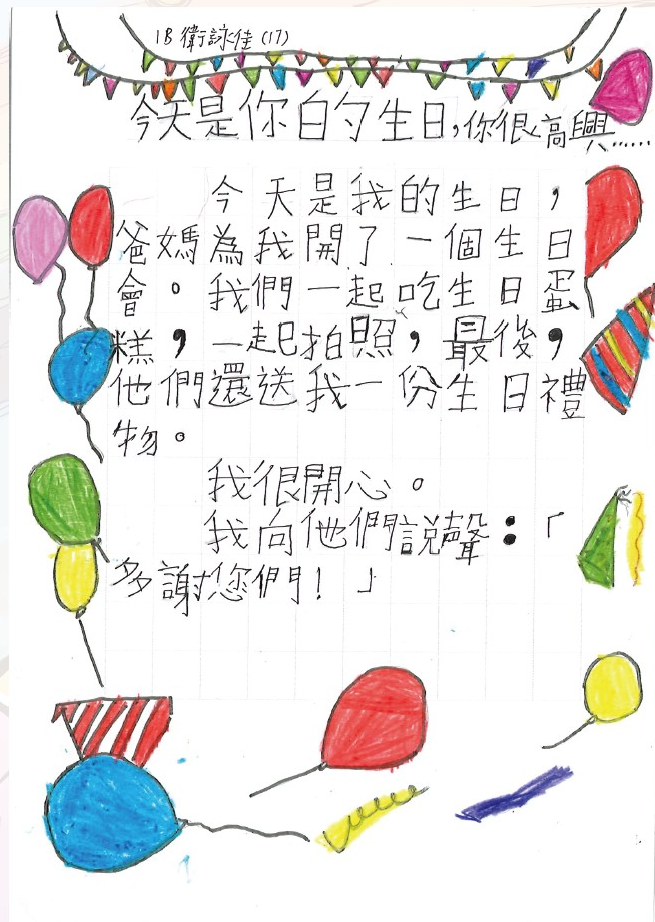 1B 衛詠佳 (17)
今天是你的生日,你很高興……
今天是我的生日,
爸媽為我開了一個生日
會。我們一起吃生日蛋
糕,一起拍照,最後,
他們還送我一份生日禮
物。
我很開心。
我向他們說聲:「
多謝您們!」